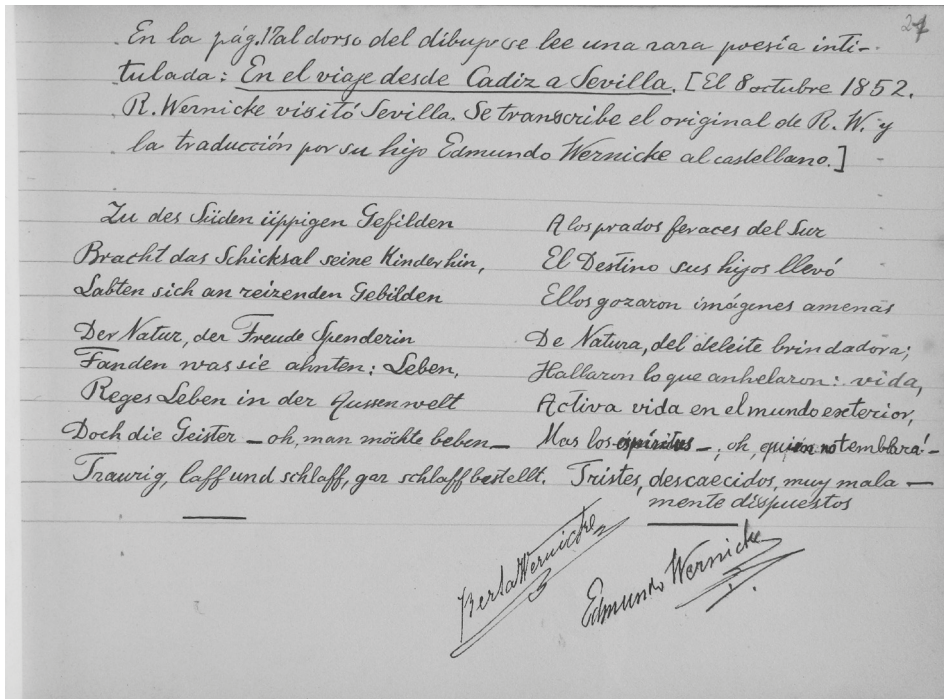 27
En la pág. 17 al dorso del dibujo se lee una rara poesía inti-
tulada: En el viaje desde Cadiz a Sevilla. [El 8 octubre 1852.
R. Wernicke visitó Sevilla. Se transcribe el original de R. W. y
la traducción por su hijo Edmundo Wernicke al castellano.]
Zu des Süden üppigen Gefilden
Bracht das Schicksal seine Kinder hin,
Labten sich an reizenden Gebilden
Der Natur, der Freude Spenderin
Fanden was sie ahnten: Leben,
Reges Leben in der Aussenwelt
Doch die Geister – oh, man möchte beben –
Traurig, laff und schlaff, gar schlaff bestellt.
A los prados feraces del Sur
El Destino sus hijos llevó
Ellos gozaron imágenes amenas
De Natura, del deleite brindadora;
Hallaron lo que anhelaron: vida,
Activa vida en el mundo exterior,
Mas los espíritus –, oh, quien no temblará –
Tristes, descaecidos, muy mala –
mente dispuestos
Berta Wernicke
Edmundo Wernicke